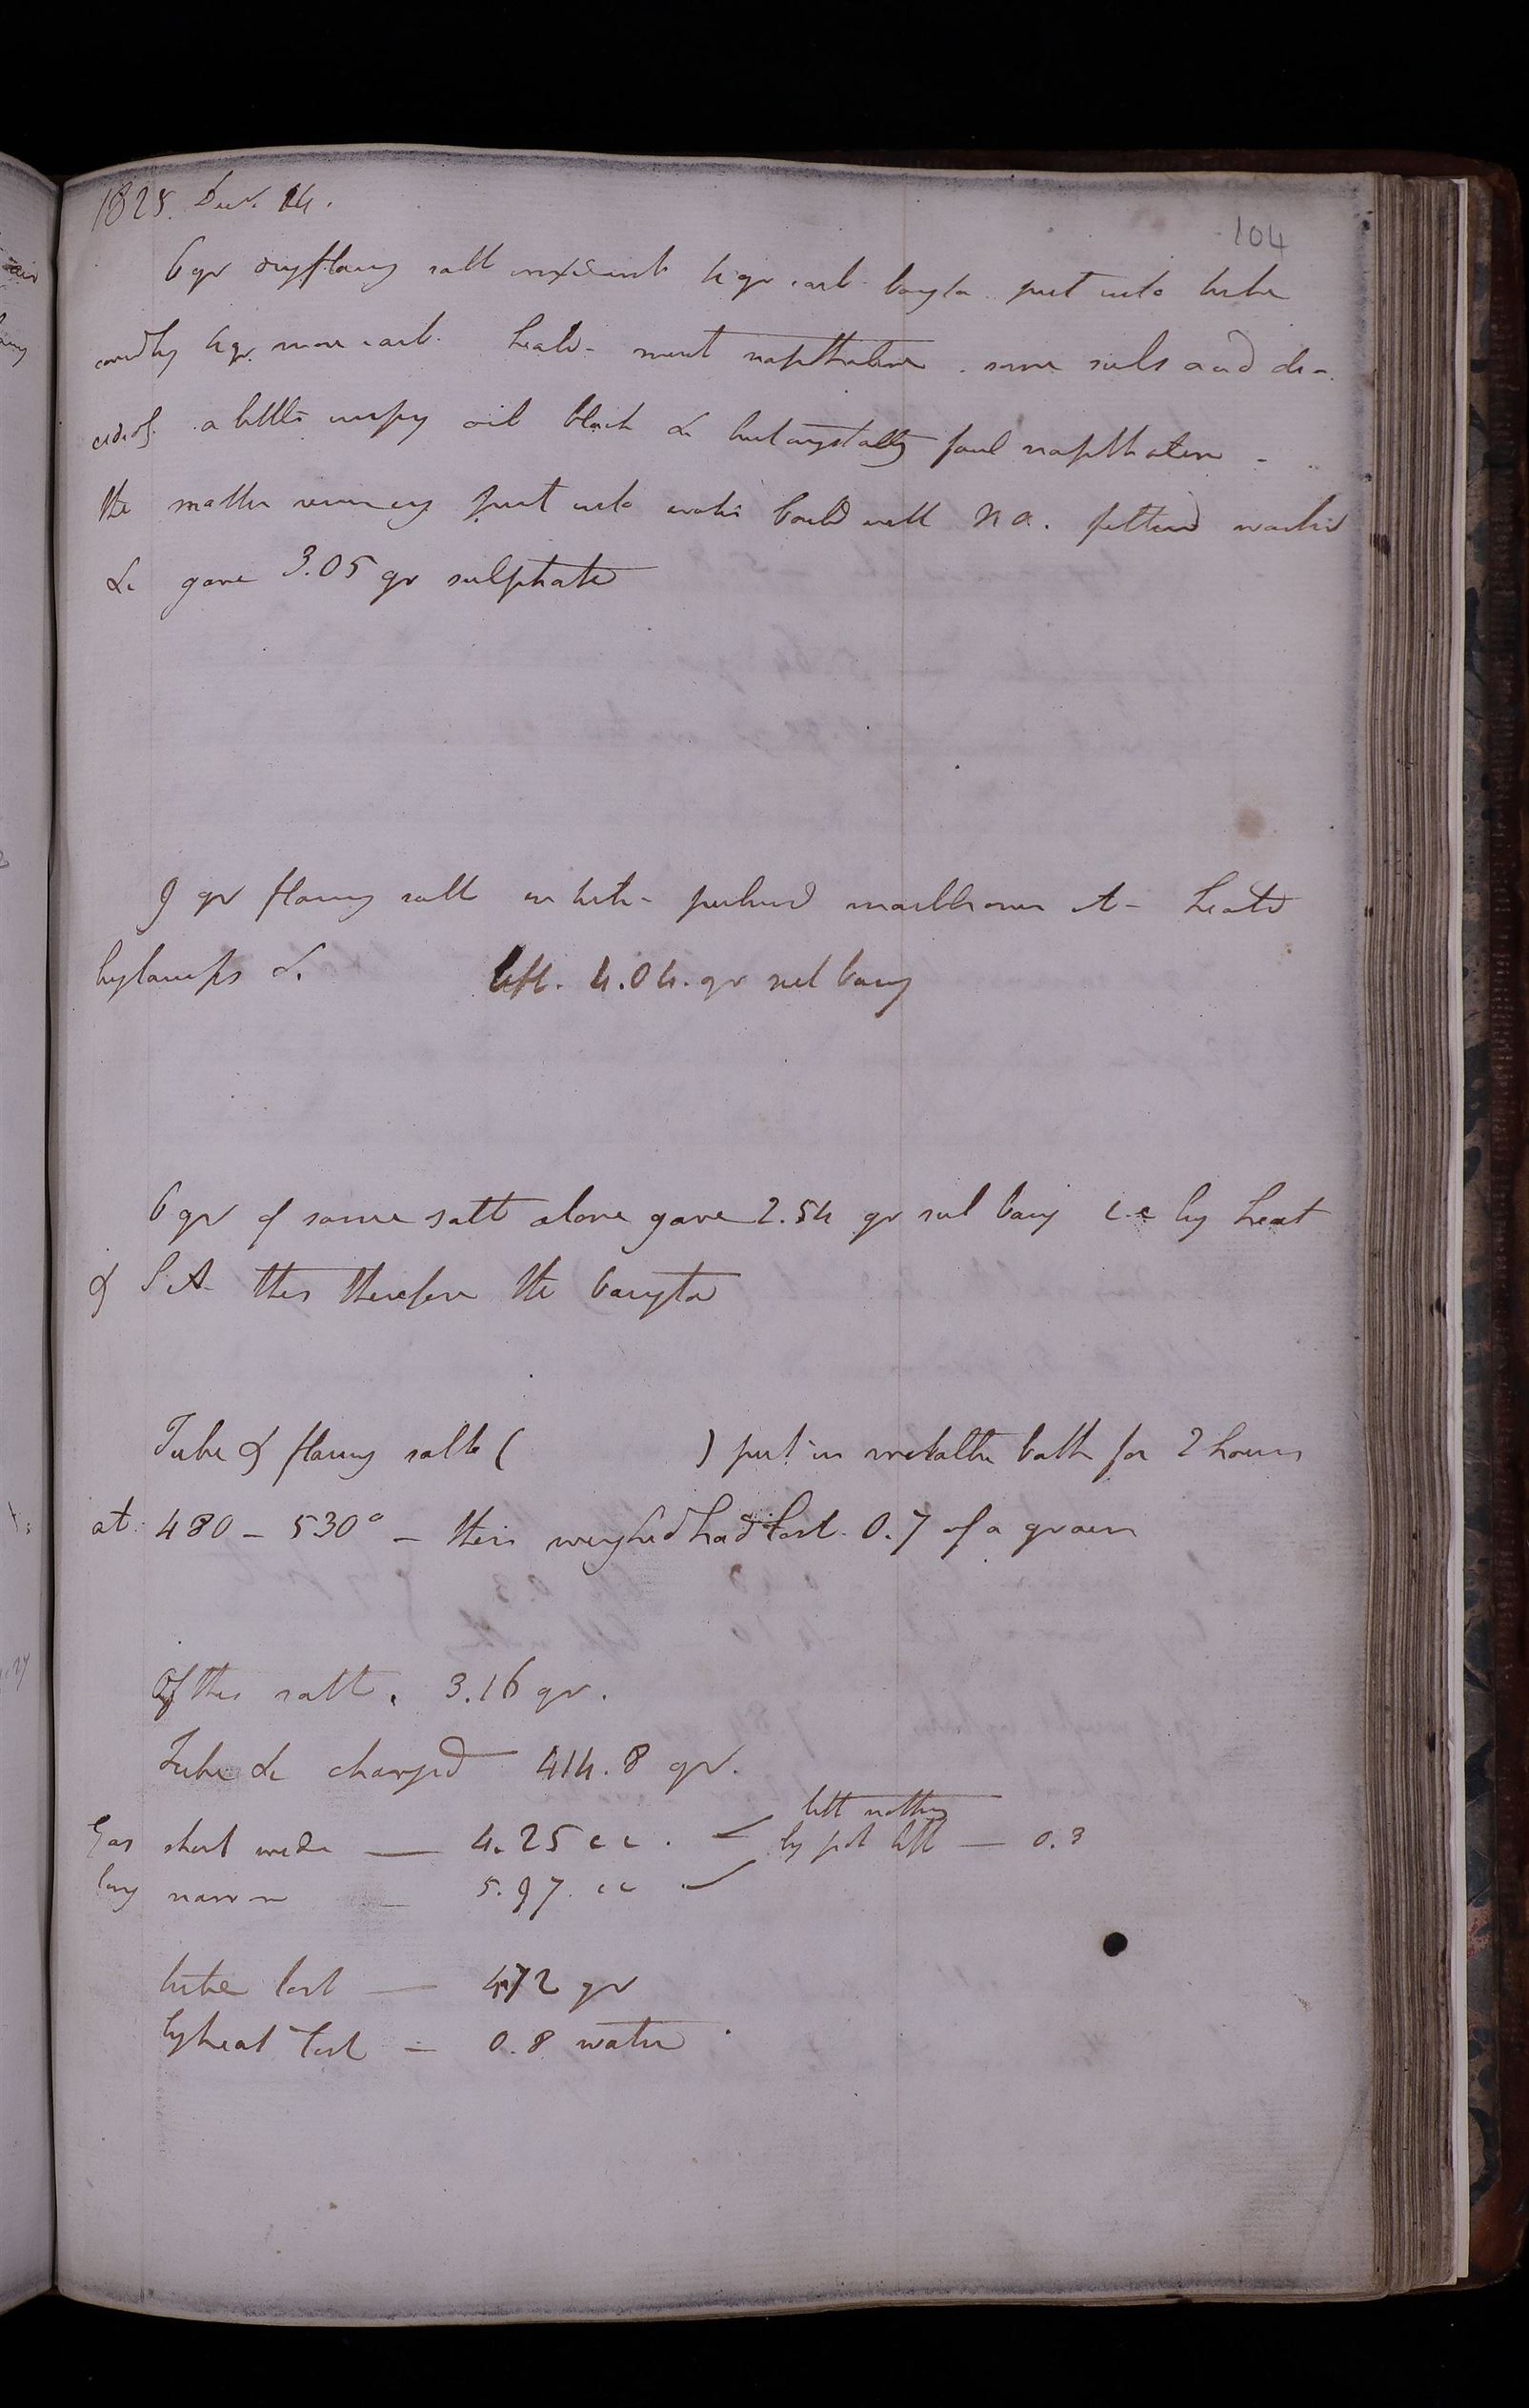 1825. Decr. 14.
104
6 gr dry flamg salt mixed with 4 gr carb baryta put into tube
coverd by 4 gr. more carb. heated - most napthaline . some sul and &c -
a little oil black & but crystally foul napthaline -
the matter remaing put into water boild with N A. filterd washed
&c gave 3.05 gr sulphate
9 gr flamg salt in tube - A - heated
by lamps &c left. 4.04. gr sul bary
6 gr of same salt alone gave 2.54 gr sul bary i.e by heat
& S A this therefore the baryta
Tube & flamg salt ( ) put in metallic bath for 2 hours
at 480 - 530° - then weighed had lost 0.7 of a grain
Of this salt . 3.16 gr.
Tube &c charged 414.8 gr.
left nothing
Gas short wide — 4.25 c c . by pot left — 0.3
long narrow — 5.97. c c
tube lost — 4.72 gr
by heat lost — 0.8 water